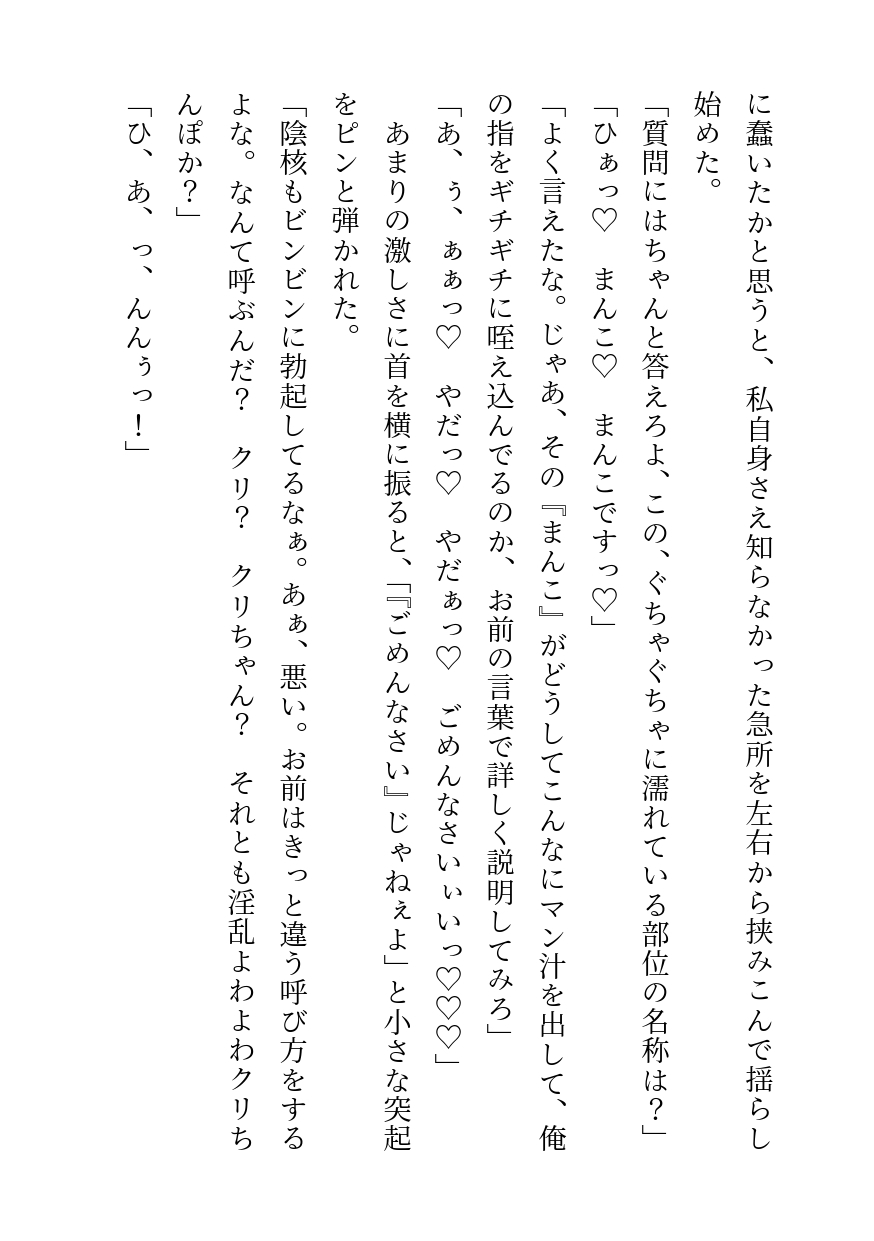 に蠢いたかと思うと、私自身さえ知らなかった急所を左右から挟みこんで揺らし
始めた。
「質問にはちゃんと答えろよ、この、ぐちゃぐちゃに濡れている部位の名称は？」
「ひぁっ♡　まんこ♡　まんこですっ♡」
「よく言えたな。じゃあ、その『まんこ』がどうしてこんなにマン汁を出して、俺
の指をギチギチに咥え込んでるのか、お前の言葉で詳しく説明してみろ」
「あ、ぅ、ぁぁっ♡　やだっ♡　やだぁっ♡　ごめんなさいぃいっ♡♡♡」
　あまりの激しさに首を横に振ると、「『ごめんなさい』じゃねぇよ」と小さな突起
をピンと弾かれた。
「陰核もビンビンに勃起してるなぁ。あぁ、悪い。お前はきっと違う呼び方をする
よな。なんて呼ぶんだ？　クリ？　クリちゃん？　それとも淫乱よわよわクリち
んぽか？」
「ひ、あ、っ、んんぅっ！」